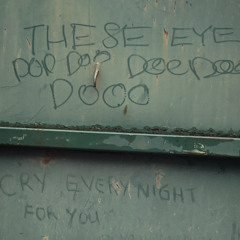 THESE EYE
DOP DOO DOEDOO
DOOO
CRY EVERY NIGHT
FOR YOU